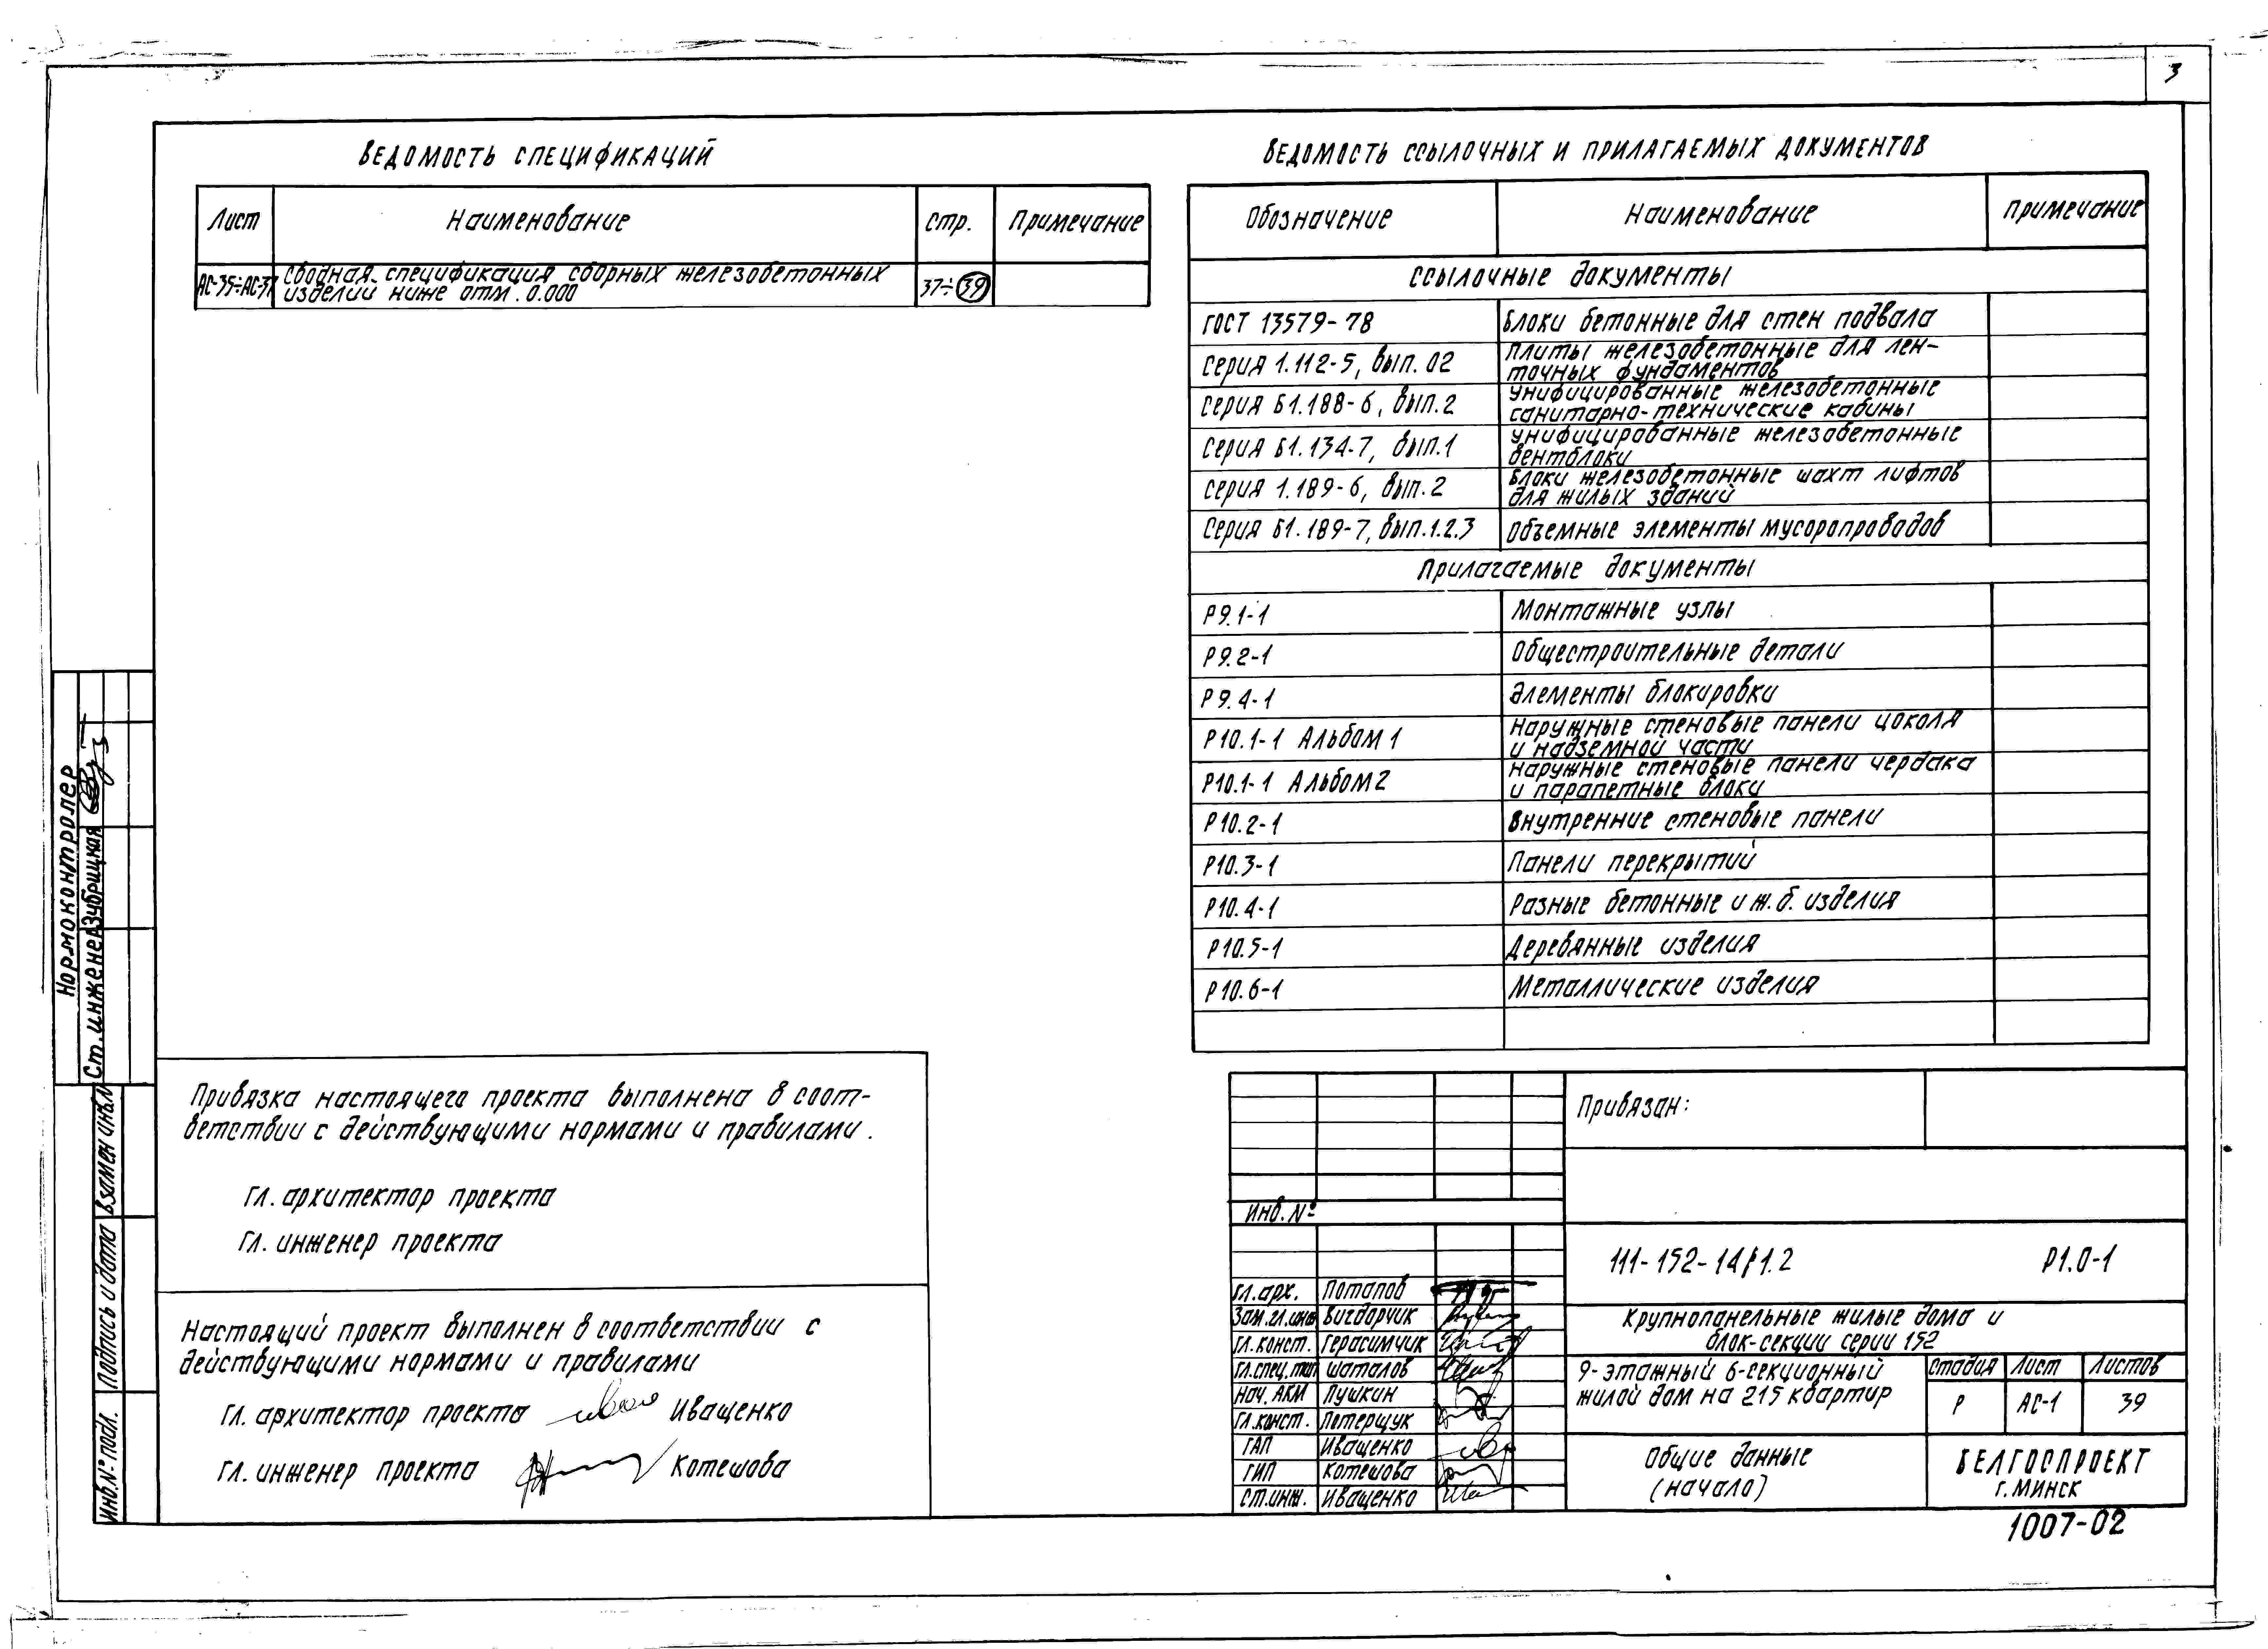 3
ВЕДОМОСТЬ СПЕЦИФИКАЦИЙ
Лист Наименование стр. Примечание
АС-35÷АС-37 Сводная спецификация сборных железобетонных
изделий ниже отм. 0.000 37÷39
ВЕДОМОСТЬ ССЫЛОЧНЫХ И ПРИЛАГАЕМЫХ ДОКУМЕНТОВ
Обозначение Наименование примечание
ссылочные документы
ГОСТ 13579-78 Блоки бетонные для стен подвала
Серия 1.112-5, вып. 02 Плиты железобетонные для лен-
точных фундаментов
Серия Б1.188-6, вып.2 Унифицированные железобетонные
санитарно-технические кабины
Серия Б1.134-7, вып.1 Унифицированные железобетонные
вентблоки
Серия 1.189-6, вып.2 Блоки железобетонные шахт лифтов
для жилых зданий
Серия Б1.189-7, вып.1.2.3 Объемные элементы мусоропроводов
Прилагаемые документы
Р9.1-1 Монтажные узлы
Р9.2-1 Общестроительные детали
Р9.4-1 Элементы блокировки
Р10.1-1 Альбом 1 Наружные стеновые панели цоколя
и надземной части
Р10.1-1 Альбом 2 Наружные стеновые панели чердака
и парапетные блоки
Р10.2-1 Внутренние стеновые панели
Р10.3-1 Панели перекрытий
Р10.4-1 Разные бетонные и ж.б. изделия
Р10.5-1 Деревянные изделия
Р10.6-1 Металлические изделия
Нормоконтролер
Ст.инженер Зубрицкая
Взамен инв.№
Подпись и дата
Инв.№ подл.
Привязка настоящего проекта выполнена в соот-
ветствии с действующими нормами и правилами.
Гл. архитектор проекта
Гл. инженер проекта
Настоящий проект выполнен в соответствии с
действующими нормами и правилами
Гл. архитектор проекта Иващенко
Гл. инженер проекта Котешова
Привязан:
Инв. №
111-152-14/1.2 Р1.0-1
Гл.арх. Потапов
Зам.гл.инж Вигдорчик
Гл.конст. Герасимчик
Гл.спец.тит Шаталов
Нач.АКМ Пушкин
Гл.конст. Потерщук
ГАП Иващенко
ГИП Котешова
Ст.инж. Иващенко
Крупнопанельные жилые дома и
блок-секции серии 152
9-этажный 6-секционный
жилой дом на 215 квартир
Стадия Лист Листов
Р АС-1 39
Общие данные
(начало)
БЕЛГОСПРОЕКТ
г. МИНСК
1007-02